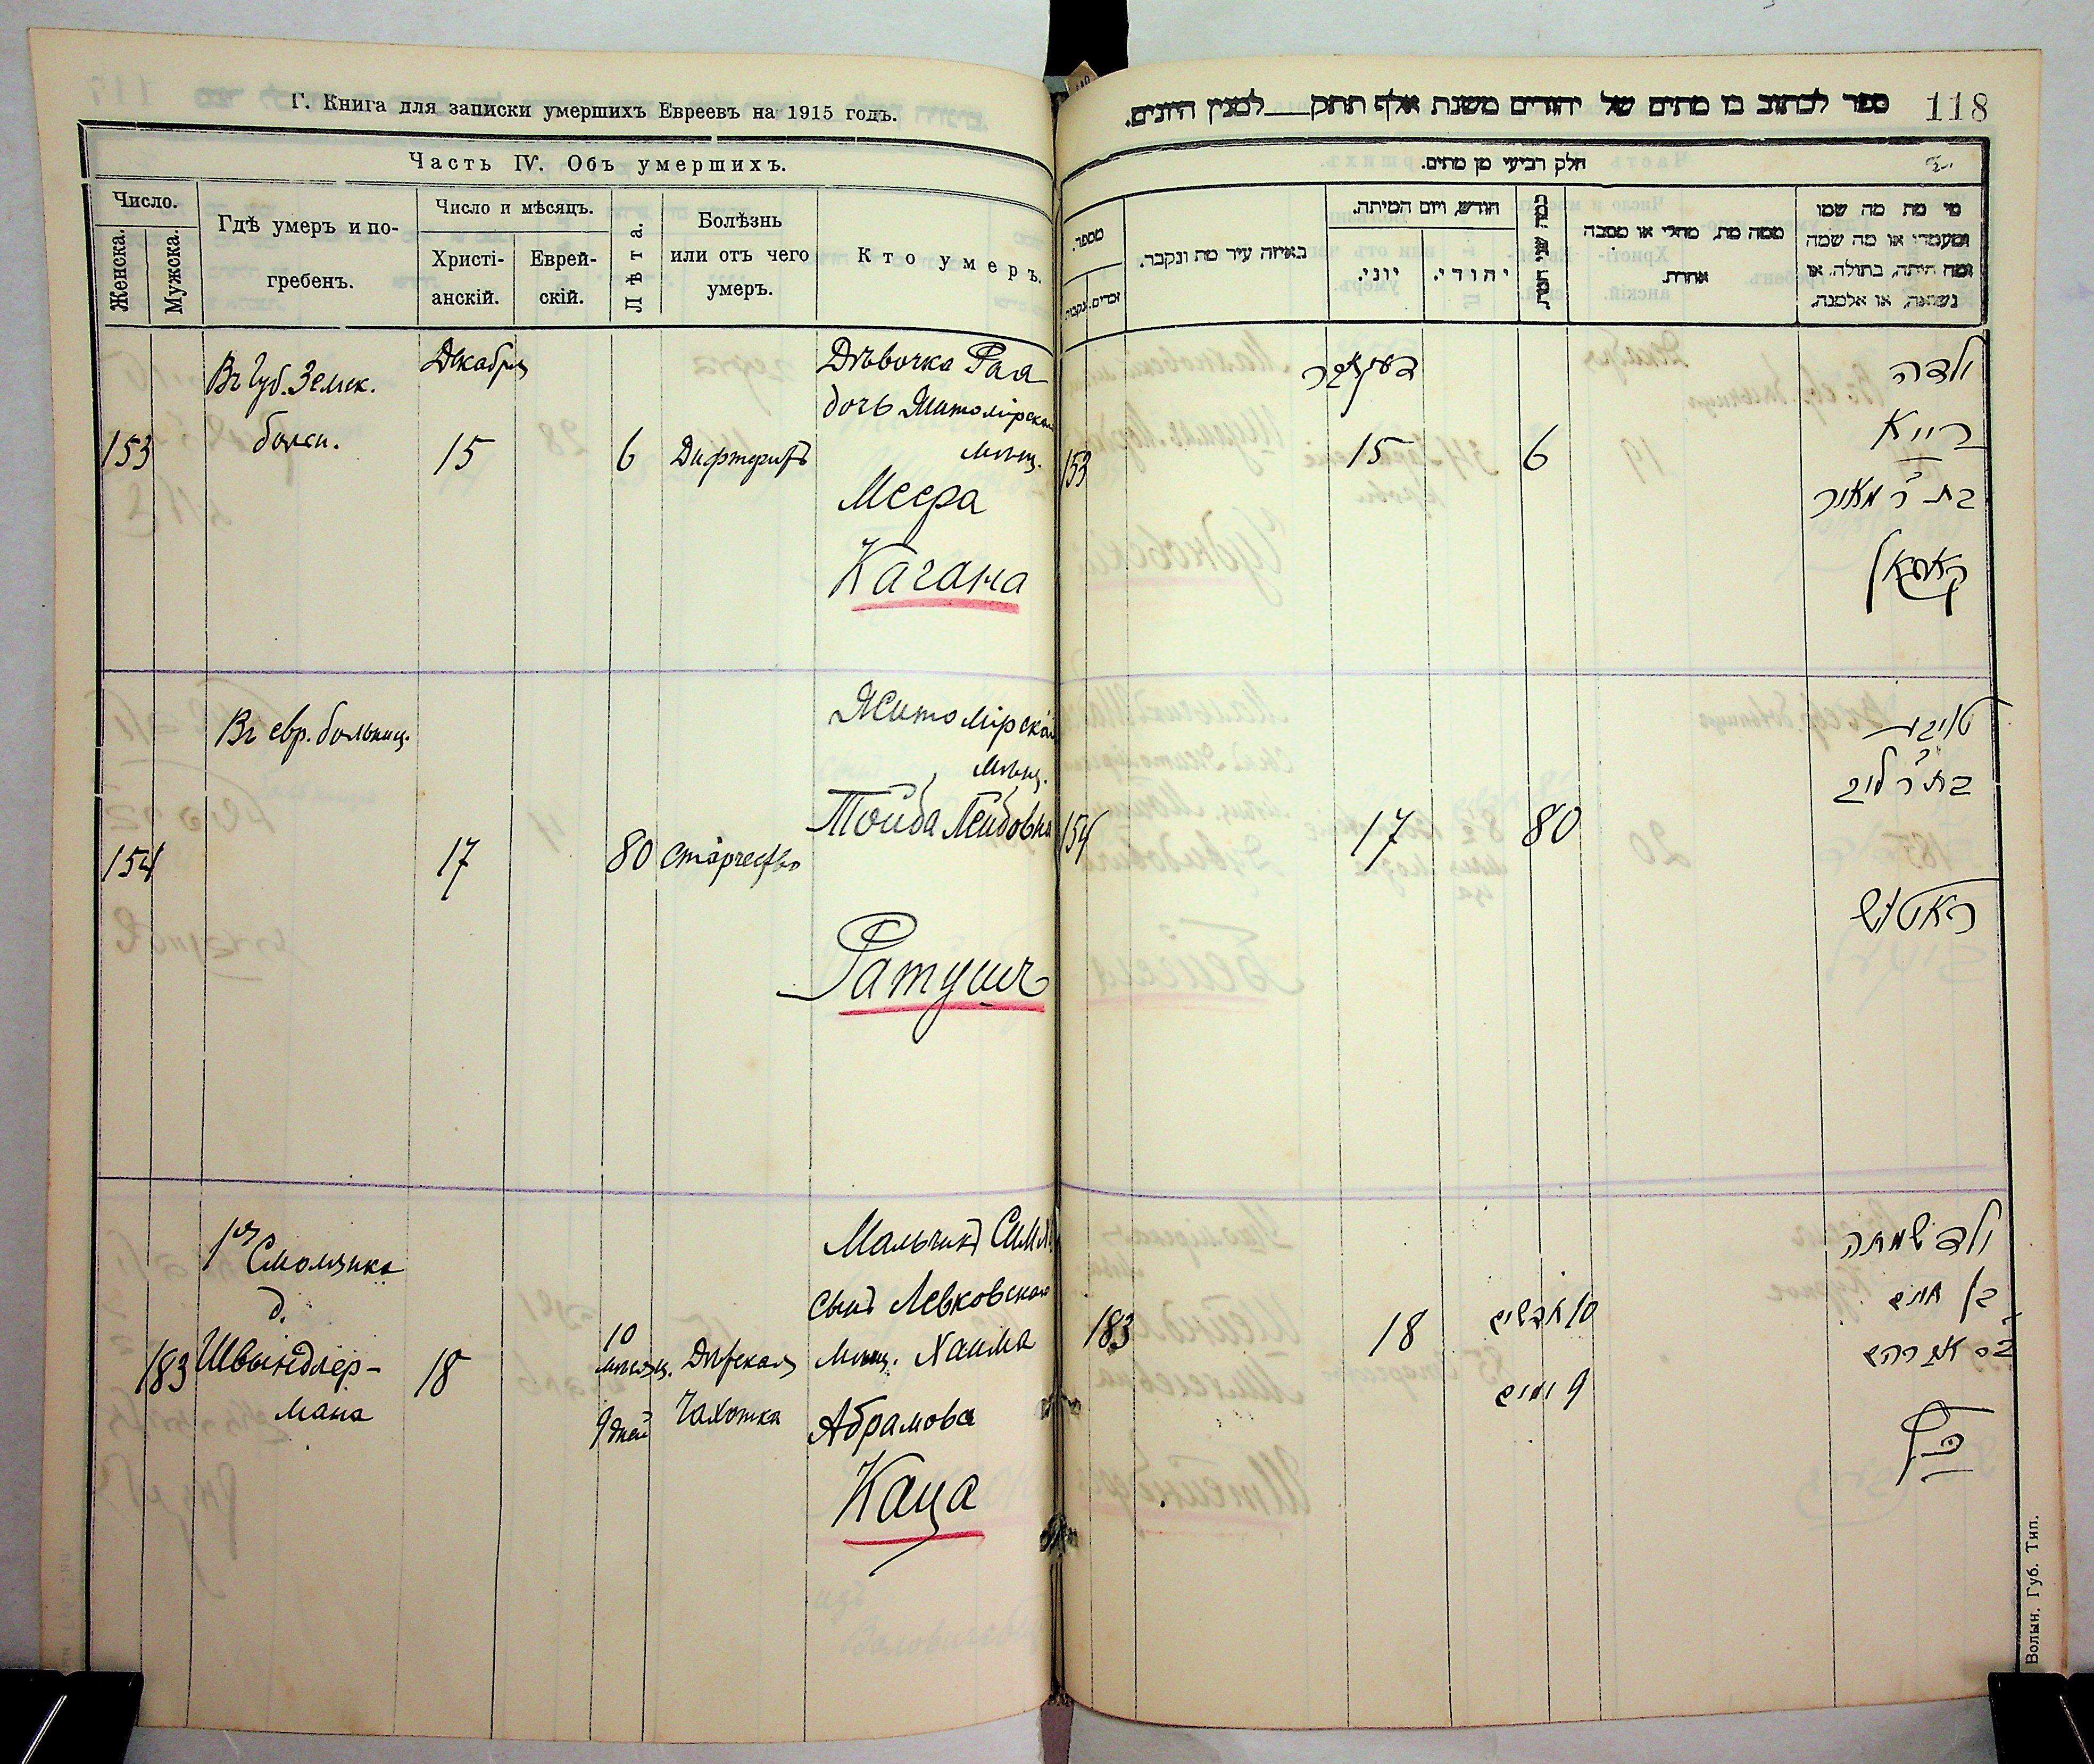 Г. Книга для записки умершихъ Евреевъ на 1915 годъ.
Часть IV. Объ умершихъ.
Число.
Женска.
Мужска.
Гдѣ умеръ и по-
гребенъ.
Число и мѣсяцъ.
Христі-
анскій.
Еврей-
скій.
Лѣта.
Болѣзнь
или отъ чего
умеръ.
Кто умеръ.
153
Въ Губ. Земск.
Декабря
15
6
Дифтеритъ
Дѣвочка Рая
дочь Житомірскаго
мѣщ.
Меера
Кагана
154
Въ евр. больниц.
17
80
Старчество
Житомірская
мѣщ.
Тойба Лейбовна
Ратушъ
183
1я Смолянка
д.
Швындлер-
мана
18
10
мѣсяц.
9 дней
Дѣтская
Чахотка
Мальчикъ
Сынъ Левковскаго
мѣщ. Хаима
Абрамова
Каца
118
ספר לכתוב בו מתים של יהודים משנת אלף תתק למנין היונים.
חלק רביעי מן מתים.
מספר.
זכרים.
נקבות
באיזה עיר מת ונקבר.
חודש, ויום המיתה.
יוני.
יהודי.
כמה שני חיות
ממה מת, מחלי או מסבה
אחרת.
מי מת מה שמו
ומעמדו או מה שמה
ומה היתה, בתולה, או
נשואה, או אלמנה.
153
דעקאבר
15
6
ילדה
רייא
בת ר' מאיר
קאגאן
154
17
80
טויבע
בת ר' לייב
ראטוש
183
18
10 חדשים
9 ימים
ילד שמחה
בן חיים
בר אברהם
כץ
Волын. Губ. Тип.